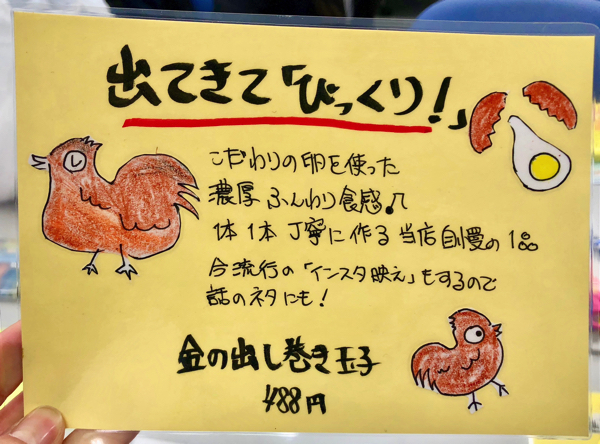 出てきて「びっくり!」
こだわりの卵を使った
濃厚 ふんわり食感♫
1本 1本 丁寧に 作る 当店 自慢の 1品
今流行の「インスタ映え」もするので
話のネタにも!
金の出し巻き玉子
488円